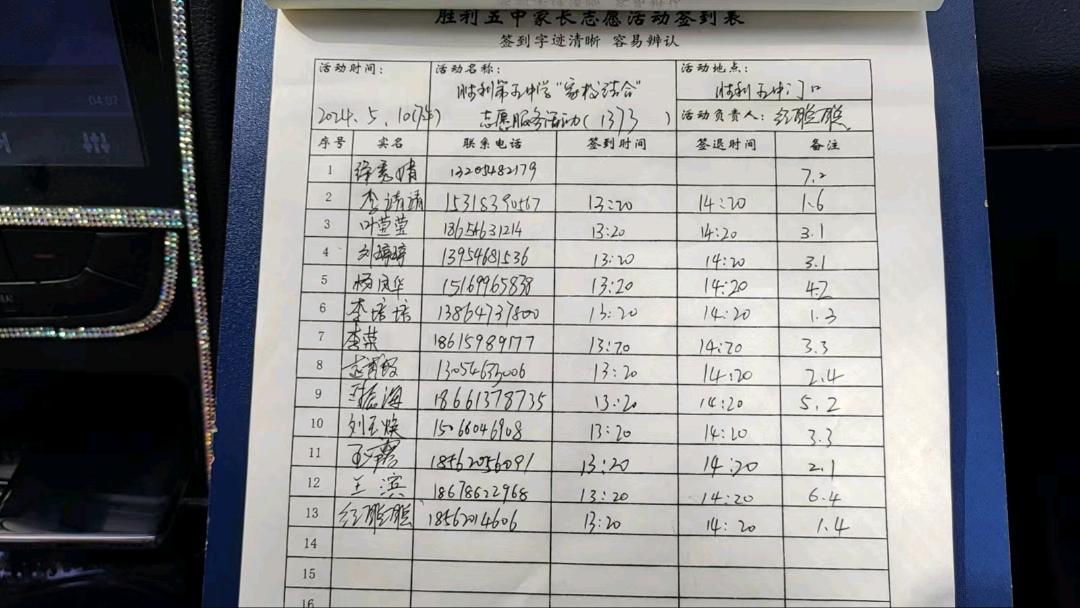 胜利五中家长志愿活动签到表
签到字迹清晰 容易辨认
活动时间： 活动名称： 活动地点：
胜利第五中学"家校结合" 胜利五中门口
2024.5.10 志愿服务活动( ) 活动负责人：
序号 实名 联系电话 签到时间 签退时间 备注
1 13205482179 7.2
2 李靖靖 15318390567 13:20 14:20 1.6
3 叶莹莹 18654631214 13:20 14:20 3.1
4 13954681536 13:20 14:20 3.1
5 杨凤华 15169965838 13:20 14:20 4.2
6 李培培 13864737800 13:20 14:20 1.3
7 李荣 18615989177 13:20 14:20 3.3
8 13054633006 13:20 14:20 2.4
9 18661378735 13:20 14:20 5.2
10 刘玉焕 15066046908 13:20 14:20 3.3
11 18562056091 13:20 14:20 2.1
12 王滨 18678622968 13:20 14:20 6.4
13 18562014606 13:20 14:20 1.4
14
15
16
04:07